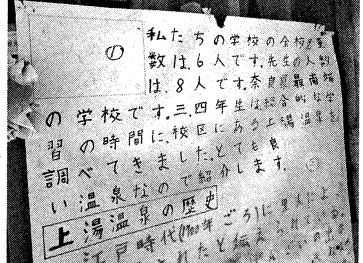 の
私たちの学校の全校児童
数は、6人です。先生の人数
は、8人です。奈良県最南端
の学校です。三、四年生は総合的な学
習の時間に、校区にある上湯温泉を
調べてきました。とても良
い温泉なので紹介します。
上湯温泉の歴史
江戸時代(1700年ごろ)に
れたと伝えられている。